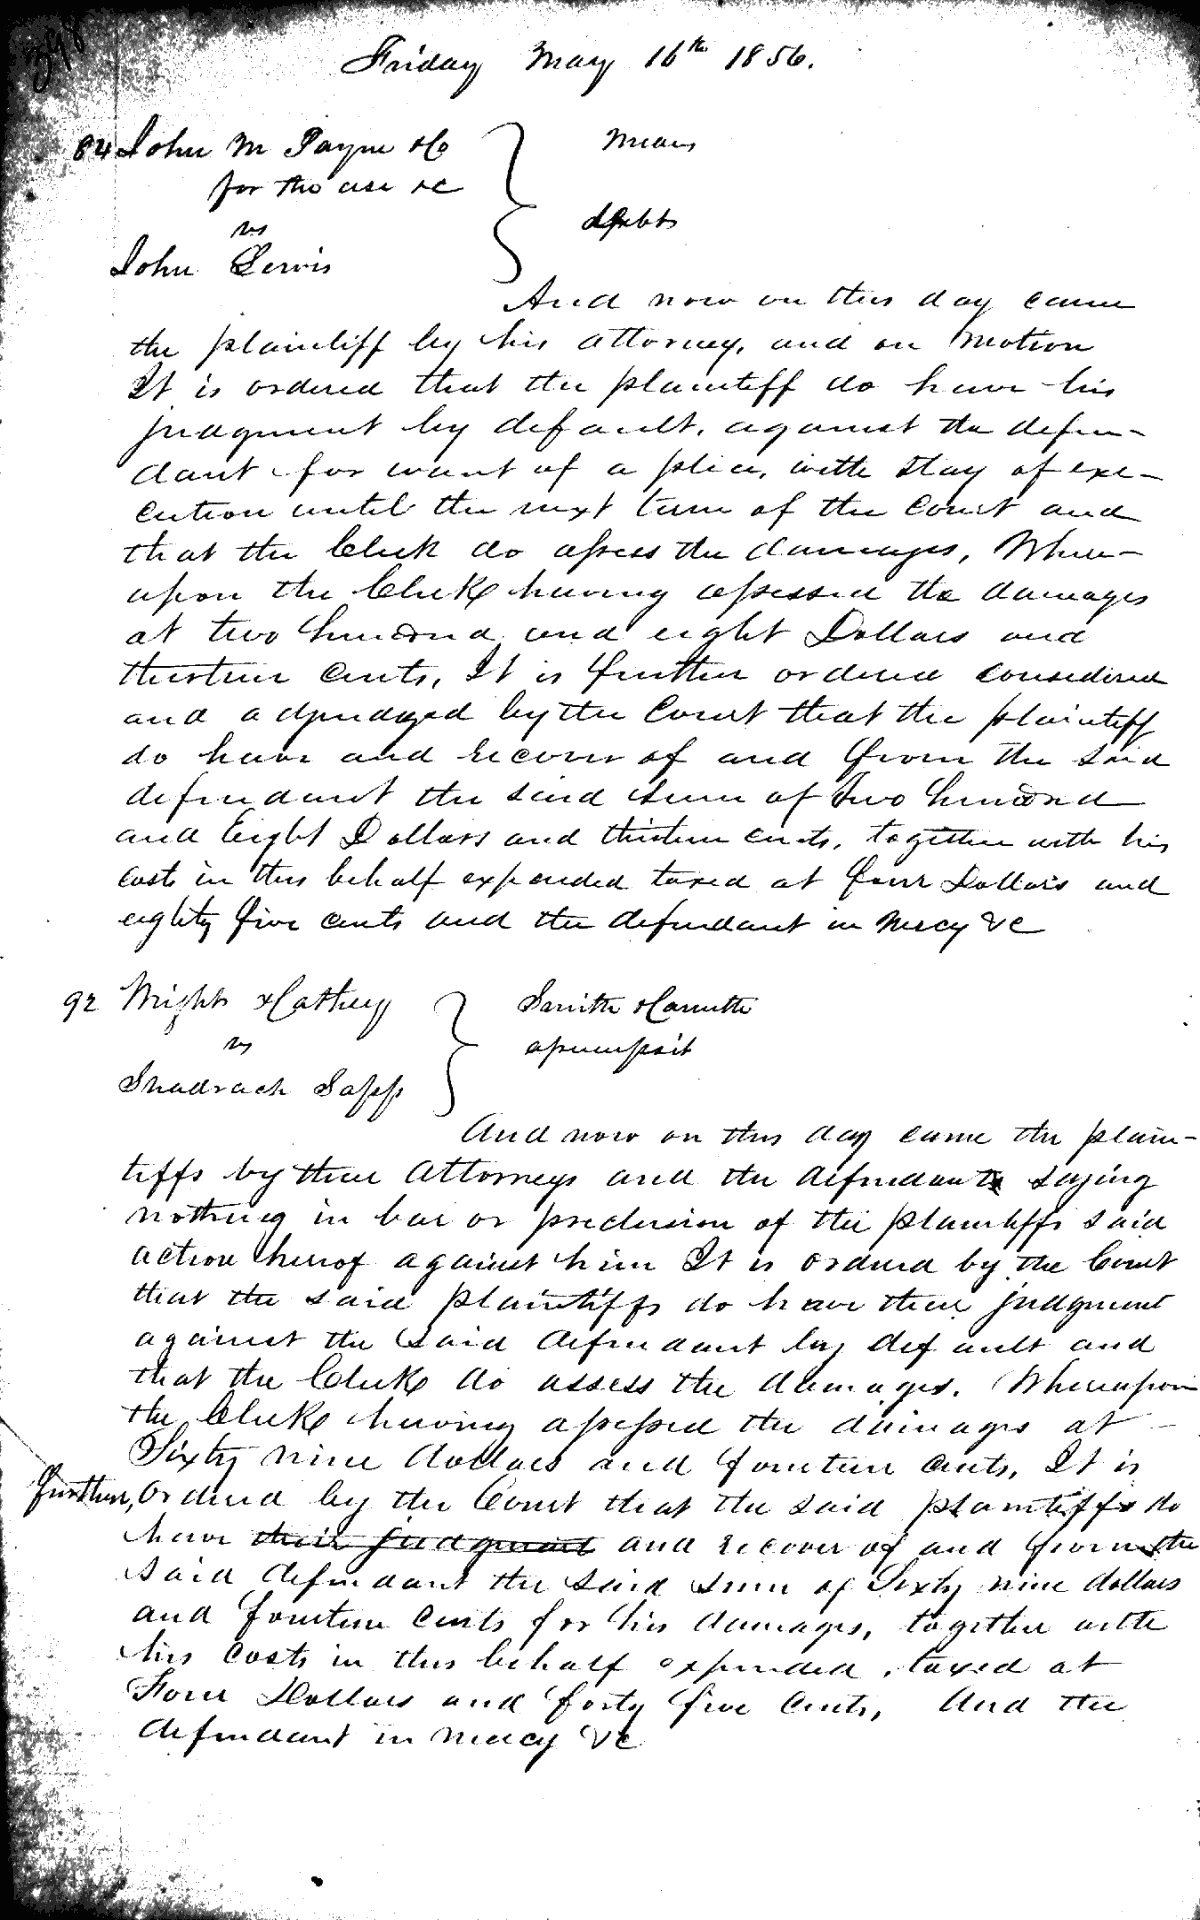 398
Friday May 16th 1856.
84 John M Payne & Co Mean
for the use &c
vs debt
John Lewis
And now on this day came
the plaintiff by his attorney, and on motion
It is ordered that the plaintiff do have his
judgment by default, against the defen-
dant for want of a plea, with stay of exe-
cution until the next term of the Court and
that the Clerk do assess the damages, Where-
upon the Clerk having assessed the damages
at two hundred and eight Dollars and
thirteen cents, It is further ordered considered
and adjudged by the Court that the plaintiff
do have and recover of and from the said
defendant the said sum of Two hundred
and Eight Dollars and thirteen cents, together with his
costs in this behalf expended taxed at four Dollars and
eighty five cents and the defendant in mercy &c
92 Wright & Cathey Smith & Carruth
vs assumpsit
Shadrach Sapp
And now on this day came the plain-
tiffs by their attorneys and the defendant saying
nothing in bar or preclusion of the plaintiffs said
action hereof against him It is ordered by the Court
that the said plaintiffs do have their judgment
against the said defendant by default and
that the Clerk do assess the damages. Whereupon
the Clerk having assessed the damages at
Sixty nine dollars and fourteen cents, It is
further, ordered by the Court that the said plaintiffs do
have their judgment and recover of and from the
said defendant the said sum of Sixty nine dollars
and fourteen cents for his damages, together with
his costs in this behalf expended, taxed at
Four Dollars and forty five cents, And the
defendant in mercy &c